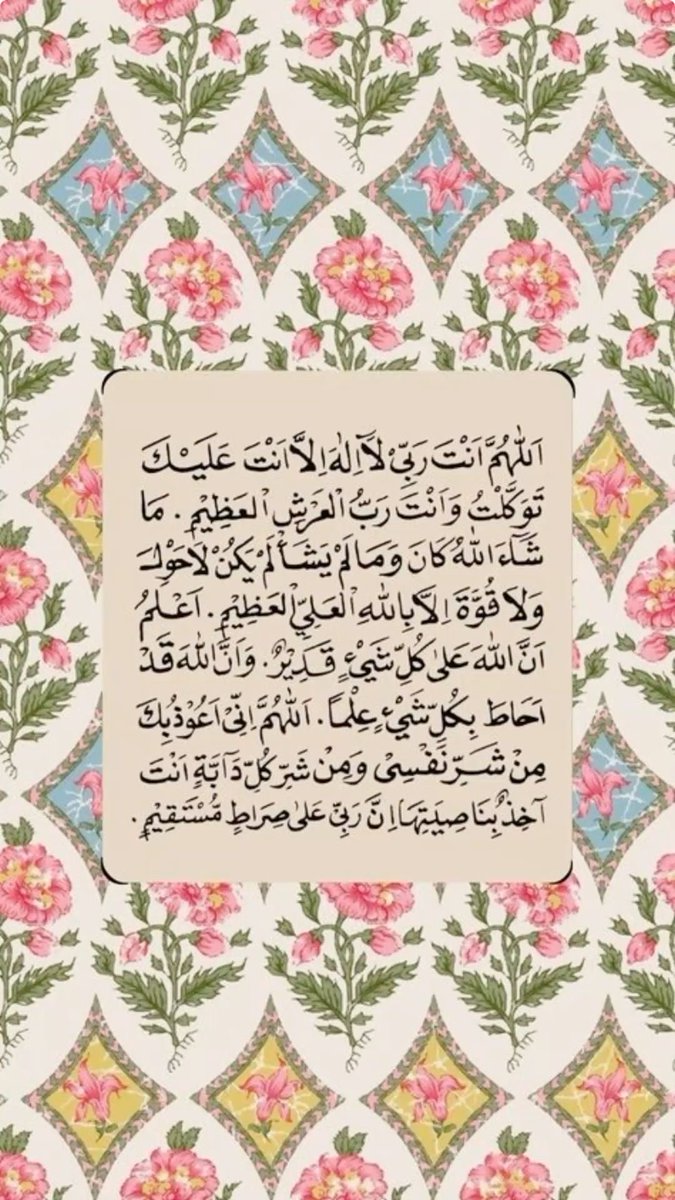 اَللّٰهُمَّ اَنْتَ رَبِّىْ لَآاِلٰهَ اِلَّا اَنْتَ عَلَيْكَ
تَوَكَّلْتُ وَاَنْتَ رَبُّ الْعَرْشِ الْعَظِيْمِ. مَا
شَآءَ اللّٰهُ كَانَ وَمَالَمْ يَشَأْلَمْ يَكُنْ لَاحَوْلَ
وَلَا قُوَّةَ اِلَّا بِاللّٰهِ الْعَلِىِّ الْعَظِيْمِ. اَعْلَمُ
اَنَّ اللّٰهَ عَلٰى كُلِّ شَىْءٍ قَدِيْرٌ. وَاَنَّ اللّٰهَ قَدْ
اَحَاطَ بِكُلِّ شَىْءٍ عِلْمًا. اَللّٰهُمَّ اِنِّىْ اَعُوْذُبِكَ
مِنْ شَرِّ نَفْسِىْ وَمِنْ شَرِّ كُلِّ دَآبَّةٍ اَنْتَ
آخِذٌ بِنَاصِيَتِهَا اِنَّ رَبِّىْ عَلٰى صِرَاطٍ مُّسْتَقِيْمٍ.